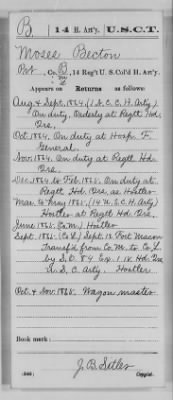 B | 14 H. Art'y. | U.S.C.T.
Moses Becton
Pvt, Co. B & M, 14 Reg't U. S. Col'd H. Art'y.
Appears on Returns as follows:
Aug & Sept. 1864 (1 N.C.C.H. Arty)
On duty, Orderly at Regtl Hd.
Qrs.
Oct. 1864. On duty at Hosp. F.
General.
Nov. 1864. On duty at Regtl Hd.
Qrs.
Dec. 1864 to Feb. 1865. On duty at
Regtl Hd. Qrs. as Hostler.
Mar. to May 1865. (14 U.S.C.H. Arty)
Hostler at Regtl Hd. Qrs.
June 1865. (Co. M.) Hostler
Sept. 1865. (Co. L.) Sept. 13. Fort Macon
Transf'd from Co. M. to Co. L.
by S.O. 84 Hd. Qrs.
U.S.C. Arty. Hostler.
Oct. & Nov. 1865. Wagon master
Book mark:
J. B. Sitler
Copyist.